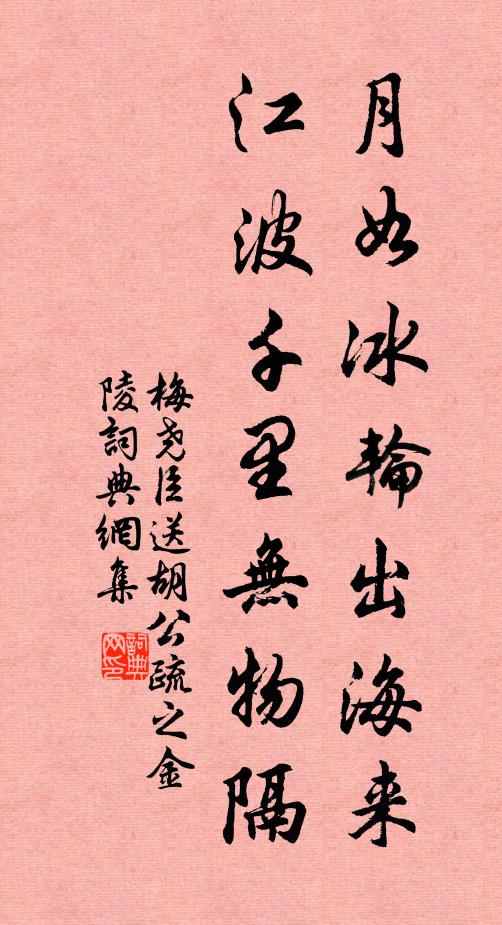 月如冰輪出海来
江波千里無物隔
梅尧臣送胡公疏之金
陵詞典網集
詞典网印